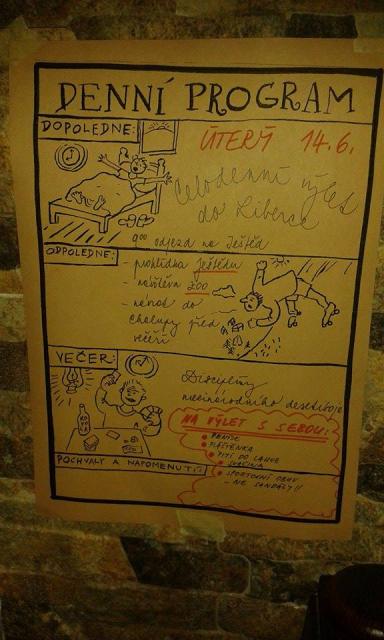 DENNÍ PROGRAM
DOPOLEDNE:
ÚTERÝ 14.6.
Celodenní výlet
do Liberce
9⁰⁰ odjezd na Ještěd
ODPOLEDNE:
- prohlídka Ještědu
- návštěva ZOO
- návrat do
chalupy před
večeří
VEČER:
Disciplíny
mezinárodního desetiboje
NA VÝLET S SEBOU:
• PENÍZE
• PLÁŠTĚNKA
• PITÍ DO LAHVE
• SVAČINA
• SPORTOVNÍ OBUV
- NE SANDÁLY!!
POCHVALY A NAPOMENUTÍ: